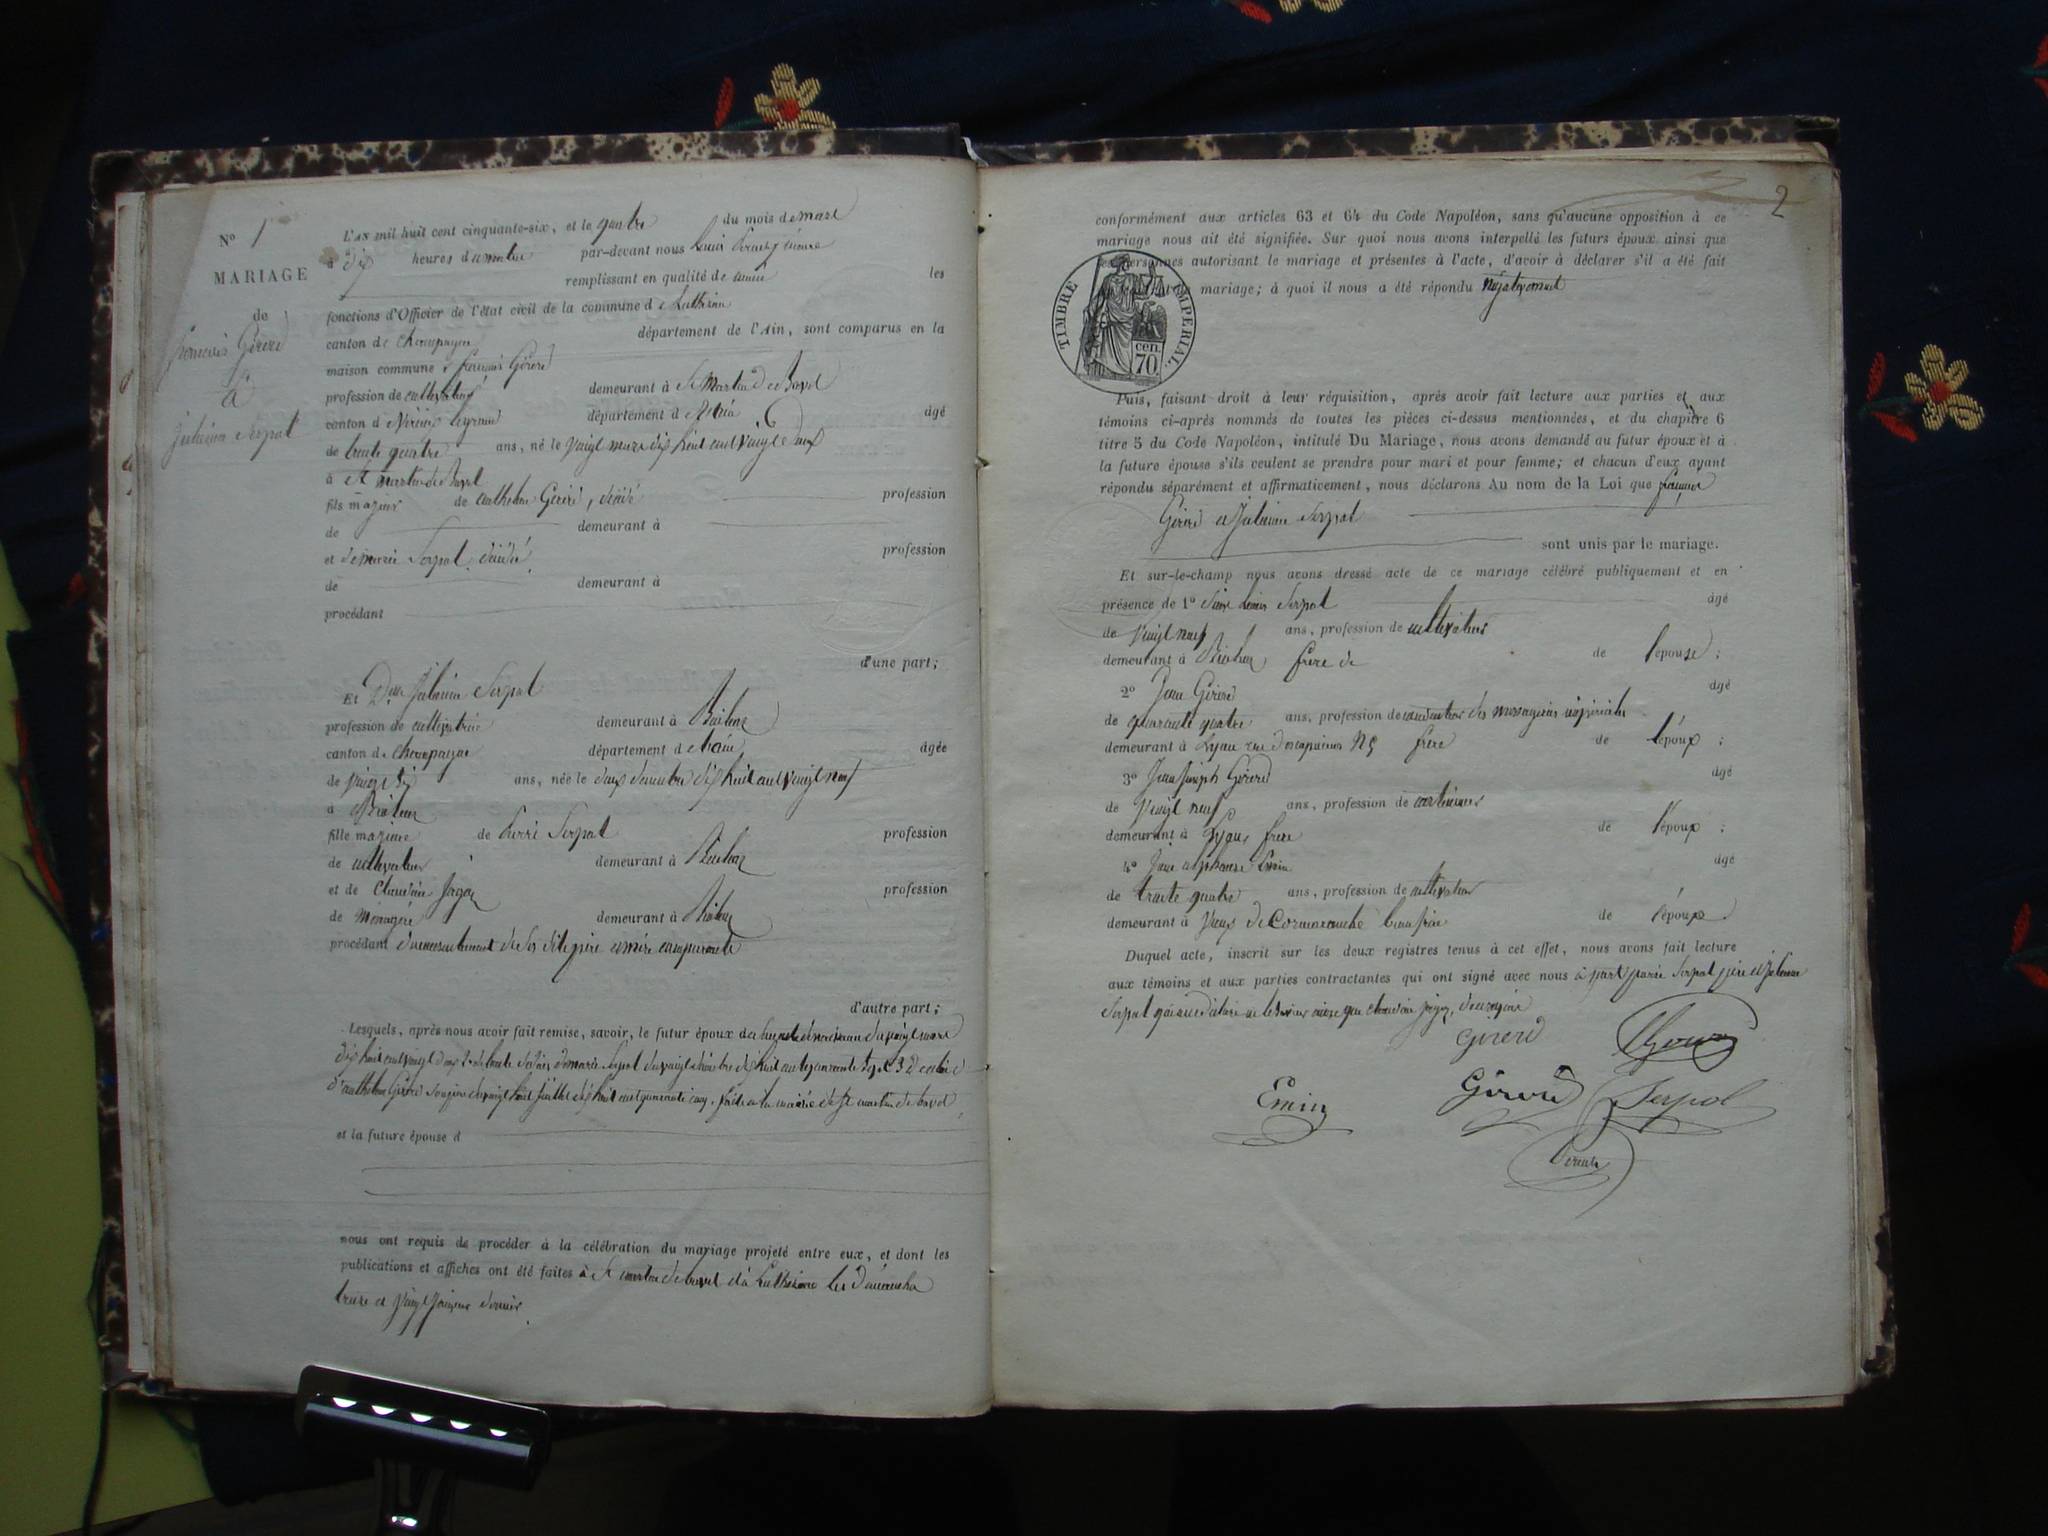 N° 1
MARIAGE
de
François Girerd
à
Julienne Serpol
L'AN mil huit cent cinquante-six, et le quatre du mois de mars
à dix heures du matin par-devant nous Louis
remplissant en qualité de maire les
fonctions d'Officier de l'état civil de la commune de
canton de Champagne département de l'Ain, sont comparus en la
maison commune François Girerd
profession de cultivateur demeurant à St Martin de Bavel
canton de Virieu le grand département de l'ain âgé
de trente quatre ans, né le vingt mars dix huit cent vingt deux
à St martin de Bavel
fils majeur de anthelme Girerd, décédé profession
de demeurant à
et de marie Serpol décédée profession
de demeurant à
procédant
d'une part;
Et Dlle Julienne Serpol
profession de cultivatrice demeurant à
canton de Champagne département de l'ain âgée
de vingt six ans, née le deux décembre dix huit cent vingt neuf
à
fille majeure de Pierre Serpol profession
de cultivateur demeurant à
et de Claudine profession
de Ménagère demeurant à
procédant du consentement de ses dits père et mère comparants
d'autre part;
Lesquels, après nous avoir fait remise, savoir, le futur époux de son acte de naissance du vingt mars
dix huit cent vingt deux 2° de l'acte de décès de marie Serpol du vingt dix huit cent quarante 3° de celui de
d'anthelme Girerd son père du vingt huit juillet dix huit cent quarante cinq, faits à la mairie de St martin de bavel
et la future épouse d
nous ont requis de procéder à la célébration du mariage projeté entre eux, et dont les
publications et affiches ont été faites à St martin de bavel et à les dimanches
treize et vingt janvier dernier.
2
conformément aux articles 63 et 64 du Code Napoléon, sans qu'aucune opposition à ce
mariage nous ait été signifiée. Sur quoi nous avons interpellé les futurs époux ainsi que
les personnes autorisant le mariage et présentes à l'acte, d'avoir à déclarer s'il a été fait
mariage; à quoi il nous a été répondu négativement
TIMBRE IMPERIAL.
cen.
70.
Puis, faisant droit à leur réquisition, après avoir fait lecture aux parties et aux
témoins ci-après nommés de toutes les pièces ci-dessus mentionnées, et du chapitre 6
titre 5 du Code Napoléon, intitulé Du Mariage, nous avons demandé au futur époux et à
la future épouse s'ils veulent se prendre pour mari et pour femme; et chacun d'eux ayant
répondu séparément et affirmativement, nous déclarons Au nom de la Loi que françois
Girerd et Julienne Serpol
sont unis par le mariage.
Et sur-le-champ nous avons dressé acte de ce mariage célébré publiquement et en
présence de 1° Louis Serpol âgé
de vingt neuf ans, profession de cultivateur
demeurant à frère de de l'épouse;
2° Jean Girerd âgé
de quarante quatre ans, profession de conducteur des messageries impériales
demeurant à Lyon rue des capucins N° frère de l'époux;
3° Jean Joseph Girerd âgé
de vingt neuf ans, profession de
demeurant à Lyon, frère de l'époux;
4° alphonse Emin âgé
de trente quatre ans, profession de cultivateur
demeurant à Vieux de de l'époux.
Duquel acte, inscrit sur les deux registres tenus à cet effet, nous avons fait lecture
aux témoins et aux parties contractantes qui ont signé avec nous à part pierre Serpol père et Julienne
Serpol
Girerd
Emin Girerd Serpol